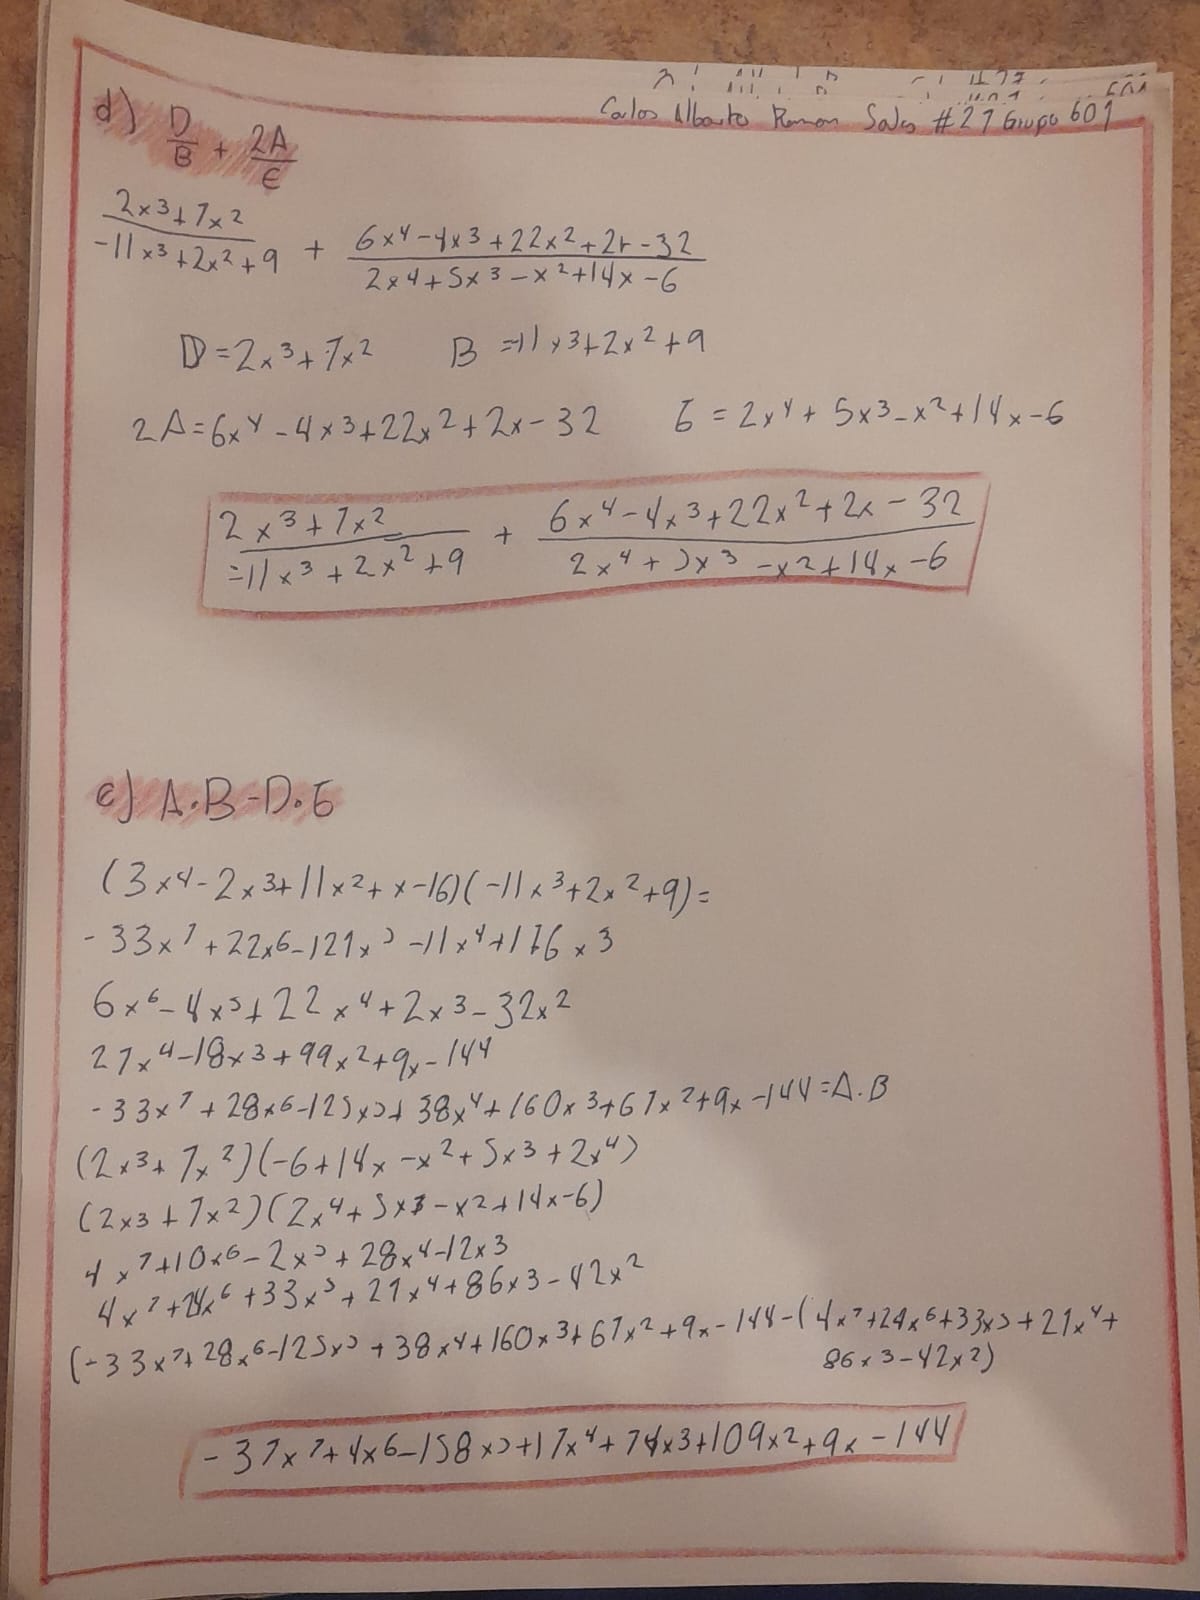 Carlos Alberto Ramon Salas #27 Grupo 601
d) D/B + 2A/E
(2x³+7x²)/(-11x³+2x²+9) + (6x⁴-4x³+22x²+2x-32)/(2x⁴+5x³-x²+14x-6)
D=2x³+7x² B=-11x³+2x²+9
2A=6x⁴-4x³+22x²+2x-32 E=2x⁴+5x³-x²+14x-6
(2x³+7x²)/(-11x³+2x²+9) + (6x⁴-4x³+22x²+2x-32)/(2x⁴+5x³-x²+14x-6)
e) A·B-D·E
(3x⁴-2x³+11x²+x-16)(-11x³+2x²+9)=
-33x⁷+22x⁶-121x⁵-11x⁴+176x³
6x⁶-4x⁵+22x⁴+2x³-32x²
27x⁴-18x³+99x²+9x-144
-33x⁷+28x⁶-125x⁵+38x⁴+160x³+67x²+9x-144=A.B
(2x³+7x²)(-6+14x-x²+5x³+2x⁴)
(2x³+7x²)(2x⁴+5x³-x²+14x-6)
4x⁷+10x⁶-2x⁵+28x⁴-12x³
4x⁷+24x⁶+33x⁵+21x⁴+86x³-42x²
(-33x⁷+28x⁶-125x⁵+38x⁴+160x³+67x²+9x-144-(4x⁷+24x⁶+33x⁵+21x⁴+
86x³-42x²)
-37x⁷+4x⁶-158x⁵+17x⁴+74x³+109x²+9x-144